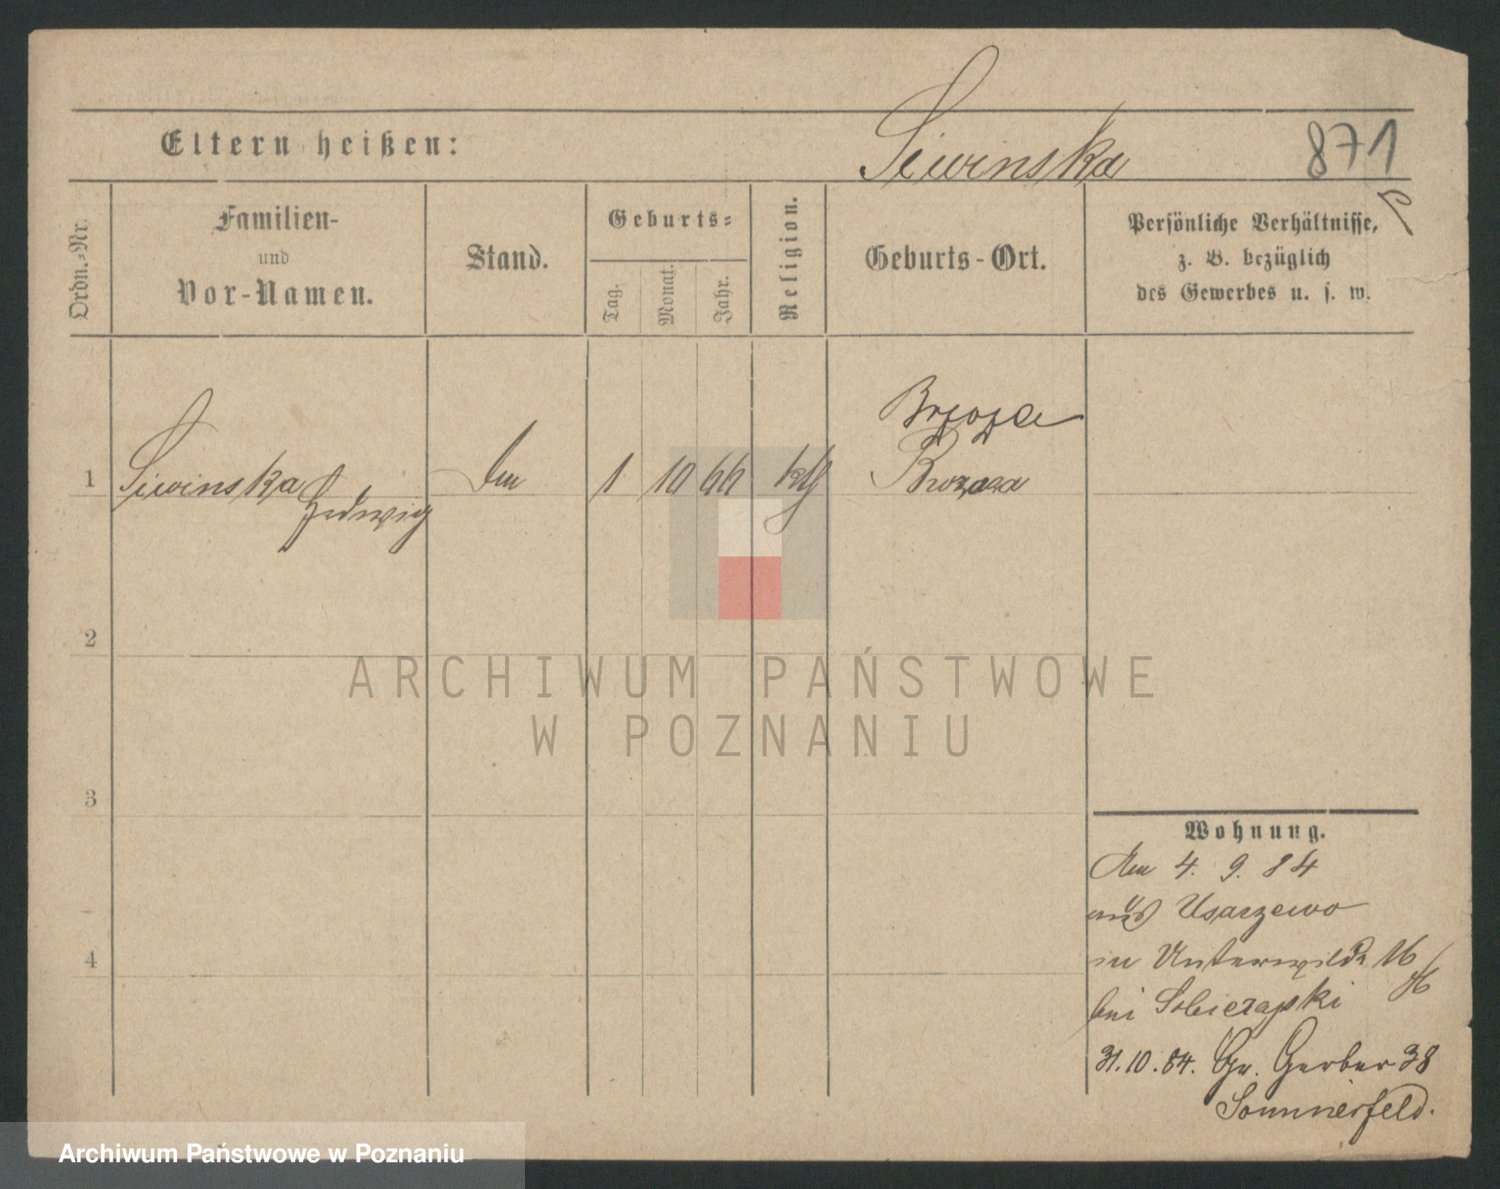 Eltern heißen: Siwinska 871
Ordn.-Nr.
Familien-
und
Vor-Namen.
Stand.
Geburts-
Tag.
Monat.
Jahr.
Religion.
Geburts-Ort.
Persönliche Verhältnisse,
z. B. bezüglich
des Gewerbes u. s. w.
Brzoza
1 Siwinska 1 10 66 kth
Hedwig
2
ARCHIWUM PAŃSTWOWE
W POZNANIU
3
4
Wohnung.
4. 9. 84
aus Usarzewo
in Unterwilda 16
bei Sobierajski
31.10.84. Gr. Gerber 38
Sommerfeld.
Archiwum Państwowe w Poznaniu